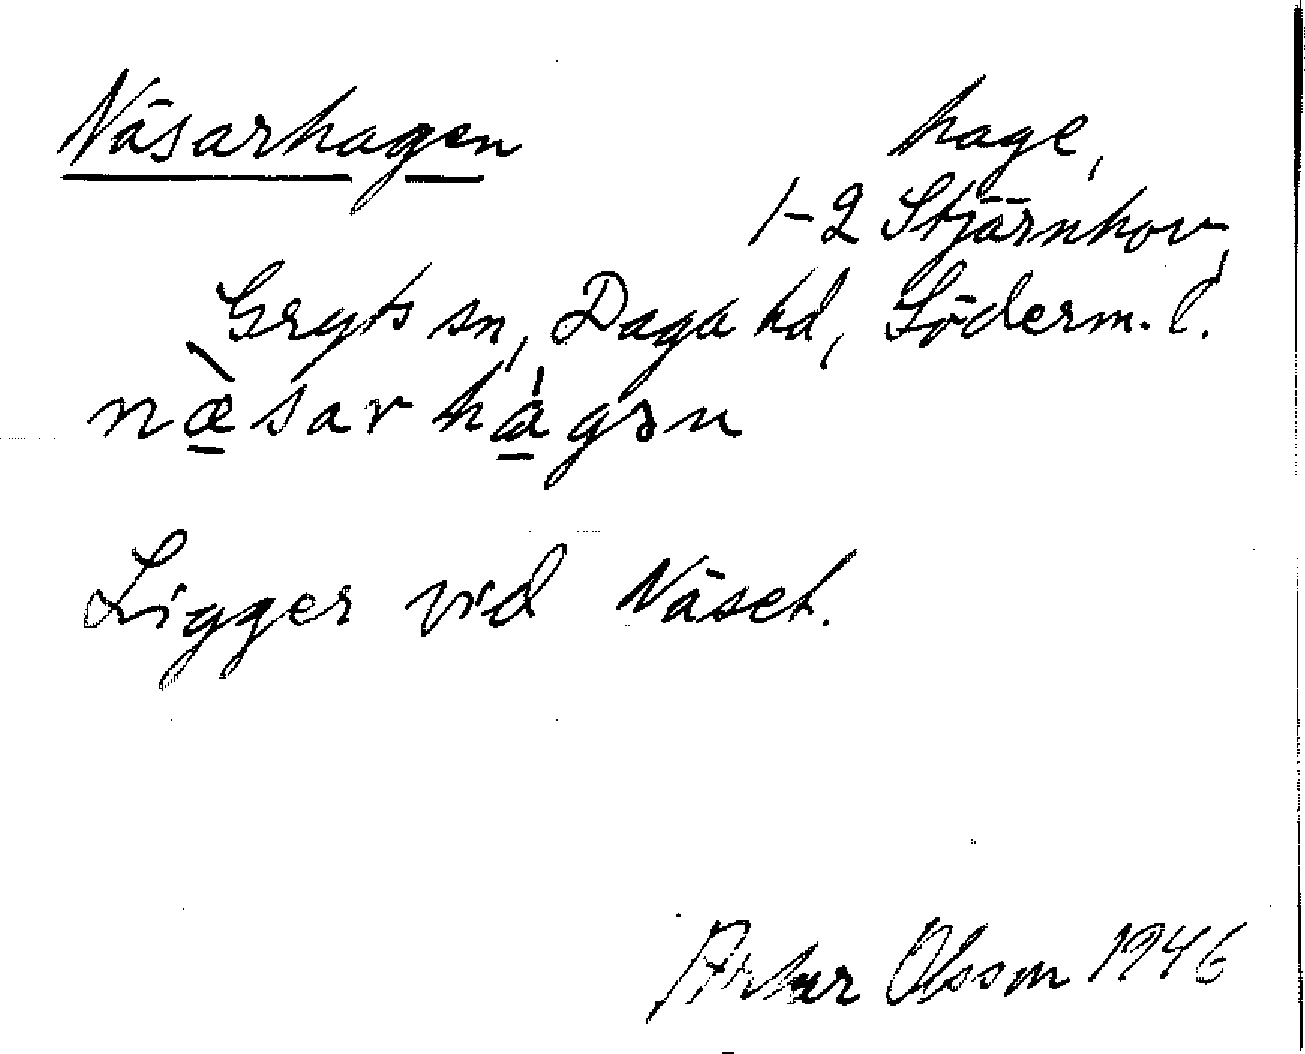 Näsarhagen hage,
1-2 Stjärnhov,
Gryts sn, Daga hd, Söderm. l.
næ̀sarhágən
Ligger vid Näset.
Artur Olsson 1946